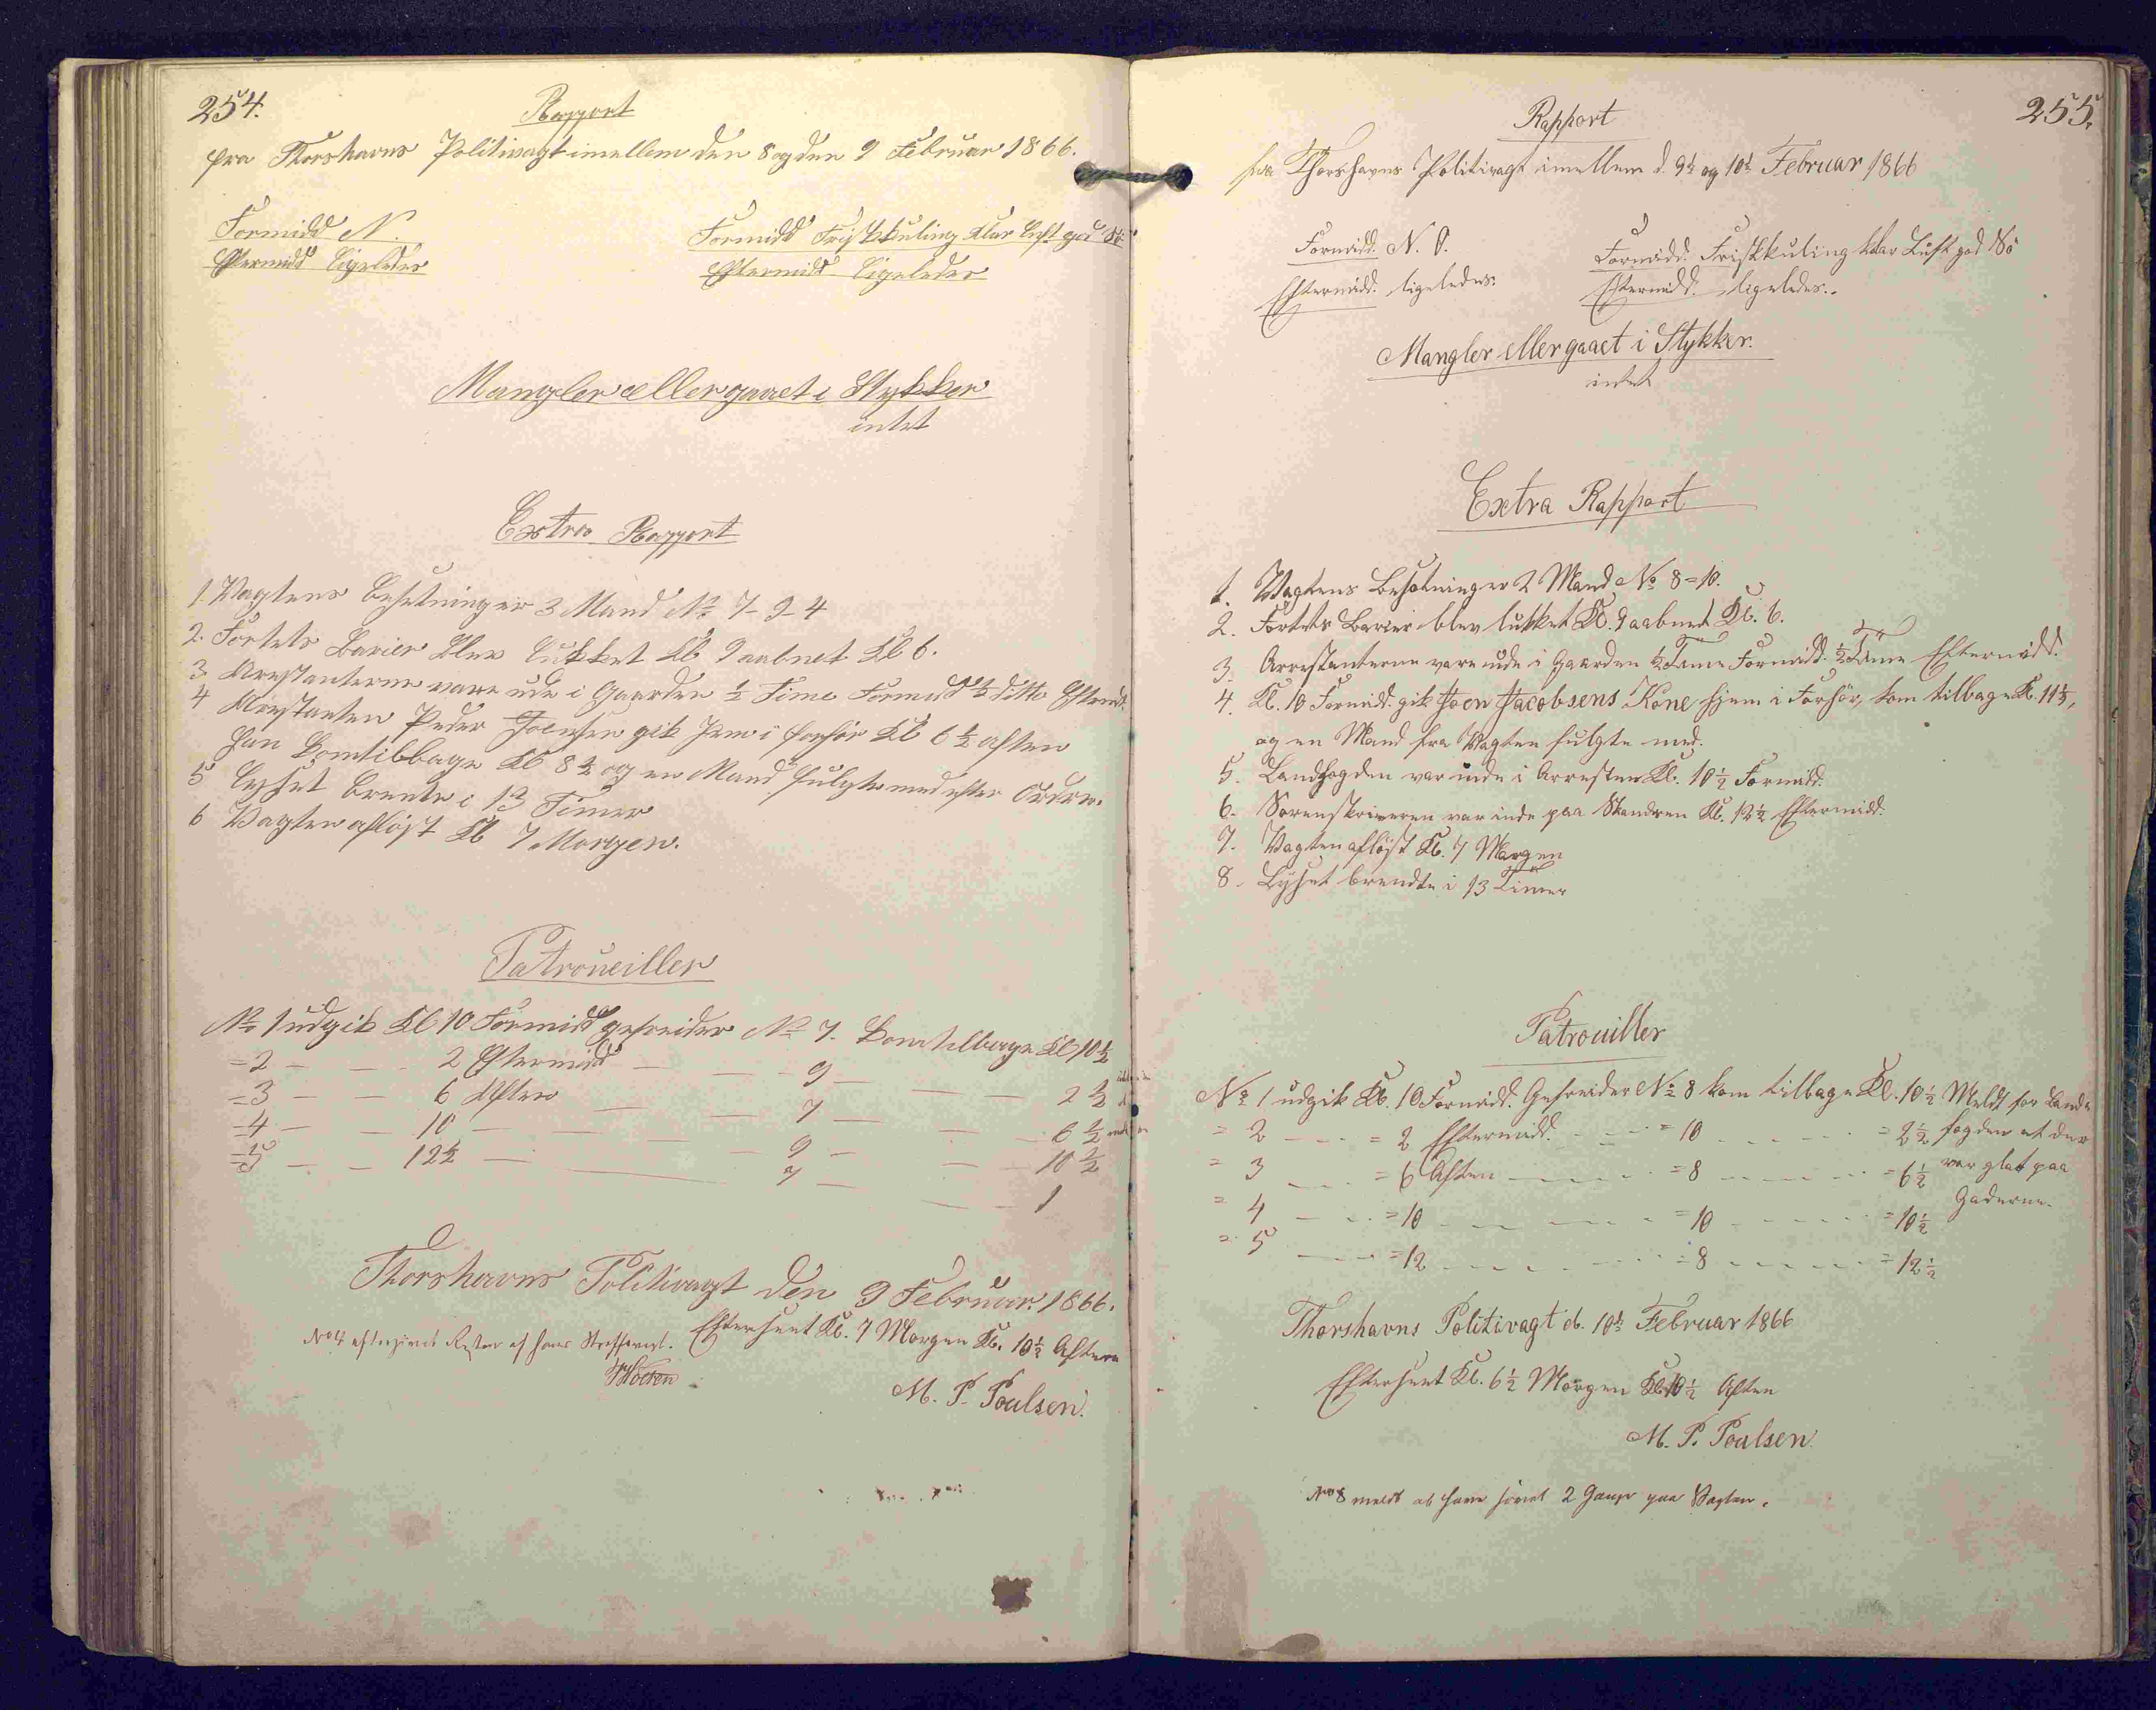 254.
Rapport
fra Thorshavns Politivagt imellem den 8 og den 9 Februar 1866.
Formidd N.
Eftermidd Ligeledes
Formidd Friskkuling klar Luft god Sö
Eftermidd Ligeledes
Mangler eller gaaet i Stykker
intet
Extra Rapport
1. Vagtens Besetning er 3 Mand No 7-9-4
2. Fortets Barier blev lukket Kl 9 aabnet Kl 6.
3 Arrestanterne vare ude i Gaarden ½ Time Formidd ½ ditto Eftermd.
4 Arrestanten Peder Joensen gik hem i forhör Kl 6½ aften
han komtilbage Kl 8½ og en Mand fulgte med efter Ordre.
5 Lyset brente i 13 Timer
6 Vagten aflöst Kl 7 Morgen.
Patroueiller
No 1 udgik Kl 10 Formidd gefreider No 7. kom tilbage Kl 10½
=2 — — 2 Eftermidd — — 9 — — 2½
=3 — — 6 Aften — — 7 — — 6½
=4 — — 10 — — 9 — — 10½
=5 — — 12½ — — 7 — — 1
Thorshavns Politivagt den 9 Februar. 1866.
Efterseet Kl. 7 Morgen Kl. 10½ Aften
No 4 eftergivet Resten af hans Straffevagt.
M. P. Poulsen.
255.
Rapport
fra Thorshavns Politivagt imellem d. 9de og 10de Februar 1866
Formidd. N. O.
Eftermidd. ligeledes.
Formidd. Friskkuling klar Luft god Sö
Eftermidd. ligeledes.
Mangler eller gaaet i Stykker.
intet
Extra Rapport
1. Vagtens Besætning er 2 Mand No 8=10.
2. Fortets Barier blev lukket Kl. 9 aabnet Kl. 6.
3. Arrestanterne vare ude i Gaarden ½ Time Formidd. ½ Time Eftermidd.
4. Kl. 10 Formidd. gik Joen Jacobsens Kone hjem i Forhör, kom tilbage Kl. 11½,
og en Mand fra Vagten fulgte med.
5. Landfogden var inde i Arresten Kl. 10½ Formidd.
6. Sorenskriveren var inde paa Skandsen Kl. 12½ Eftermidd.
7. Vagten aflöst Kl. 7 Morgen
8. Lyset brendte i 13 Timer
Patrouiller
No 1 udgik Kl. 10 Formidd. Gefreider No 8 kom tilbage Kl. 10½ Meldt for Land=
= 2 — = 2 Eftermidd. — = 10 — = 2½ fogden at der
= 3 — = 6 Aften — = 8 — = 6½ var glat paa
= 4 — = 10 — = 10 — = 10½ Gaderne.
= 5 — = 12 — = 8 — = 12½
Thorshavns Politivagt d. 10de Februar 1866
Efterseet Kl. 6½ Morgen Kl. 10½ Aften
M. P. Poulsen.
No 8 meldt at have 2 Gange paa Vagten.